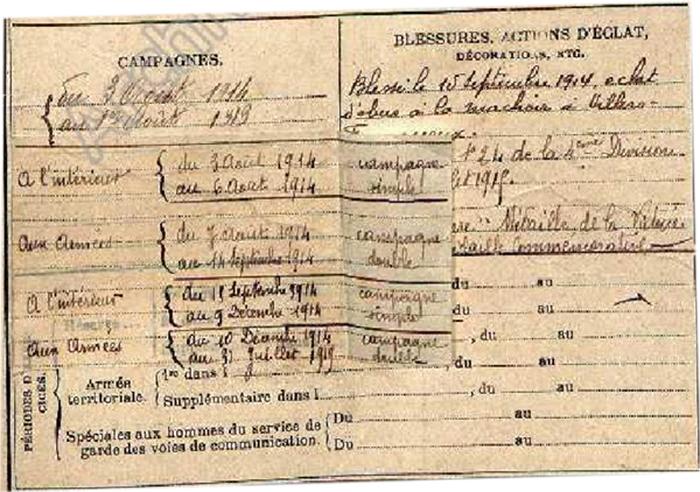 CAMPAGNES.
du 3 Août 1914
au 1er Août 1919
A l'intérieur
du 3 Août 1914
au 6 Août 1914
campagne
simple
Aux Armées
du 7 Août 1914
au 14 Septembre 1914
campagne
double
A l'intérieur
du 15 Septembre 1914
au 9 Décembre 1914
campagne
simple
Aux Armées
du 10 Décembre 1914
au 31 Juillet 1919
campagne
double
BLESSURES, ACTIONS D'ÉCLAT,
DÉCORATIONS, ETC.
Blessé le 15 Septembre 1914, eclat
d'obus à la machoire à Villers-
N° 24 de la 4eme Division
1919.
Médaille de la Victoire
Médaille Commémorative
du au
du au
, du au
, du au
PÉRIODES D
CICES.
Armée
territoriale.
1re dans l
Supplémentaire dans l , du au
Spéciales aux hommes du service de
garde des voies de communication.
Du au
Du au